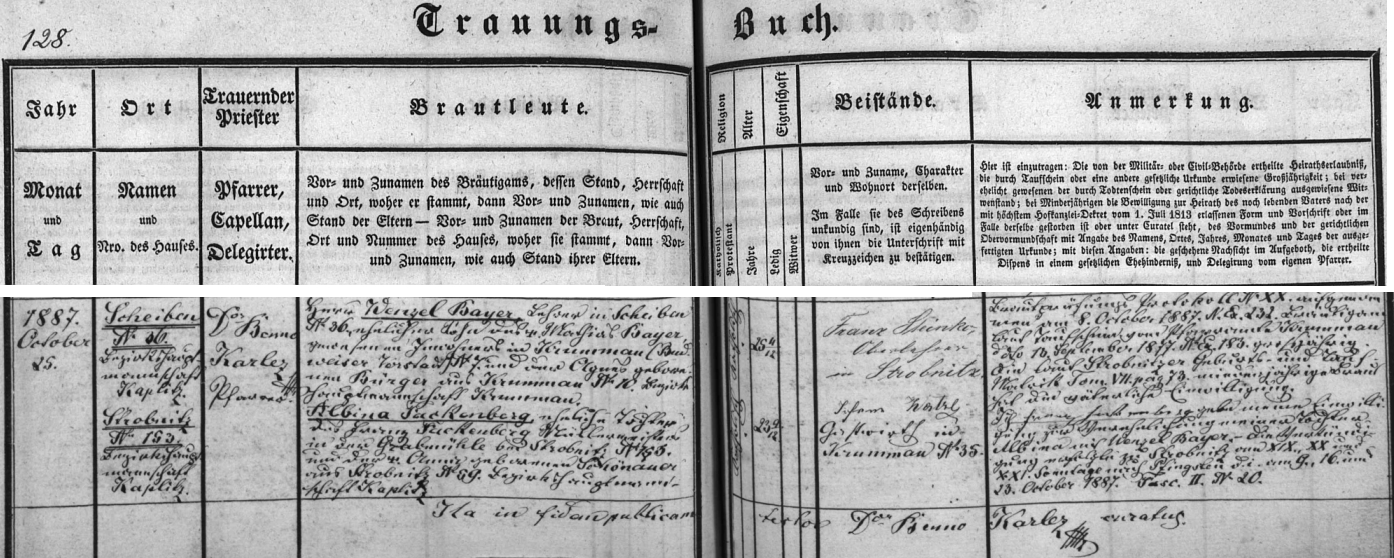 128.
Trauungs-Buch.
Jahr
Monat
und
Tag
Ort
Namen
und
Nro. des Hauses.
Trauernder
Priester
Pfarrer,
Capellan,
Delegirter.
Brautleute.
Vor- und Zunamen des Bräutigams, dessen Stand, Herrschaft
und Ort, woher er stammt, dann Vor- und Zunamen, wie auch
Stand der Eltern — Vor- und Zunamen der Braut, Herrschaft,
Ort und Nummer des Hauses, woher sie stammt, dann Vor-
und Zunamen, wie auch Stand ihrer Eltern.
Religion
Katholisch
Protestant
Alter
Jahre
Eigenschaft
Ledig
Witwer
Beistände.
Vor- und Zuname, Charakter
und Wohnort derselben.
Im Falle sie des Schreibens
unkundig sind, ist eigenhändig
von ihnen die Unterschrift mit
Kreuzzeichen zu bestätigen.
Anmerkung.
Hier ist einzutragen: Die von der Militär- oder Civil-Behörde ertheilte Heirathserlaubniß,
die durch Taufschein oder eine andere gesetzliche Urkunde erwiesene Großjährigkeit; bei ver-
ehelicht gewesenen der durch Todtenschein oder gerichtliche Todeserklärung ausgewiesene Wit-
wenstand; bei Minderjährigen die Bewilligung zur Heirath des noch lebenden Vaters nach der
mit höchstem Hofkanzlei-Dekret vom 1. Juli 1813 erlassenen Form und Vorschrift oder im
Falle derselbe gestorben ist oder unter Curatel steht, des Vormundes und der gerichtlichen
Obervormundschaft mit Angabe des Namens, Ortes, Jahres, Monates und Tages der ausge-
fertigten Urkunde; mit diesen Angaben: die geschehene Nachsicht im Aufgeboth, die ertheilte
Dispens in einem gesetzlichen Ehehinderniß, und Delegirung vom eigenen Pfarrer.
1887.
October
25.
Scheiben
No 36.
Bezirkshaupt-
mannschaft
Kaplitz.
Strobnitz
No 153.
Bezirkshaupt-
mannschaft
Kaplitz.
Dor
Benno
Karlez
Pfarrer
Herr Wenzel Bayer, Lehrer in Scheiben
No 36, ehelicher Sohn des Mathias Bayer,
gewesenen in Krummau (Bud-
weiser Vorstadt) No 7, und der Agnes gebore-
nen Bürger aus Krummau No 10. Bezirks-
hauptmannschaft Krummau.
Albina Sackenberg, eheliche Tochter
des Sackenberg, Müllermeister
in der bei Strobnitz No 153.
und der Anna, geborenen Schönauer
aus Strobnitz No 59. Bezirkshauptmann-
schaft Kaplitz
Ita in fidem publicam
25 4/12
23 9/12
Franz
Oberlehrer
in Strobnitz.
Watzl
Gastwirth in
Krummau No 35.
Protokoll No XX. aufgenom
men am 8. October 1887. Bräutigam
laut Taufschein vom Pfarramte Krummau
dto 16. September 1877 No 183. großjährig.
Die laut Strobnitzer Geburts- und Tauf-
Matrik Tom. VII. pag. 73. minderjährige Braut
die väterliche Einwilligung.
Ich gebe meine Einwilli-
gung zur Verehelichung meiner Tochter
Albina mit Wenzel Bayer.
zu Strobnitz am XIX., XX und
XXI. Sonntage nach Pfingsten d. i. am 9., 16. und
23. October 1887. Fasc. II. No 20.
Dor Benno Karlez curatus.